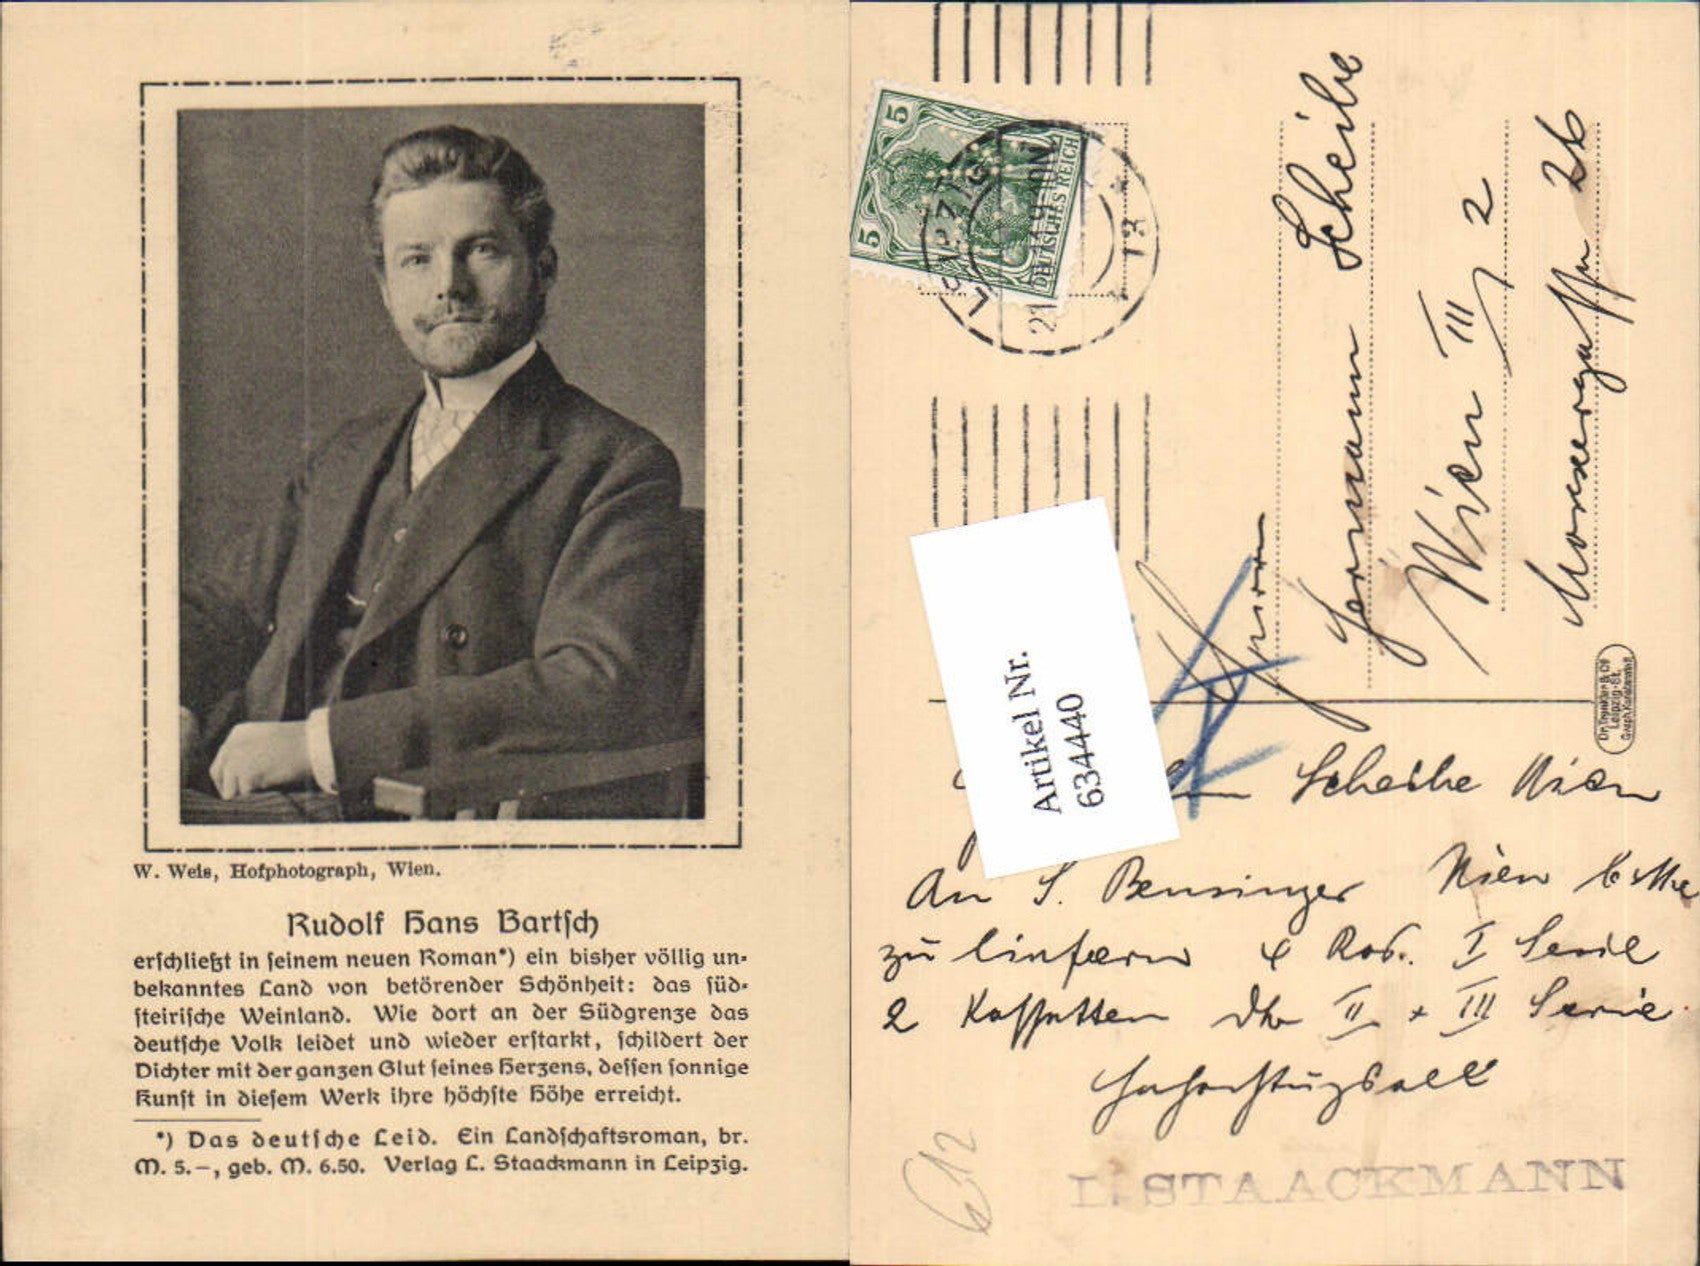 W. Weis, Hofphotograph, Wien.
Rudolf Hans Bartsch
erschließt in seinem neuen Roman*) ein bisher völlig un-
bekanntes Land von betörender Schönheit: das süd-
steirische Weinland. Wie dort an der Südgrenze das
deutsche Volk leidet und wieder erstarkt, schildert der
Dichter mit der ganzen Glut seines Herzens, dessen sonnige
Kunst in diesem Werk ihre höchste Höhe erreicht.
*) Das deutsche Leid. Ein Landschaftsroman, br.
M. 5.–, geb. M. 6.50. Verlag L. Staackmann in Leipzig.
5
5
DEUTSCHES REICH
LEIPZIG
13
Herrn
Hermann Scheibe
Wien III/2
Marxergasse 26
Dr. Trenkler & Co
Leipzig-St.
Artikel Nr.
634440
Scheibe Wien
An S. Bensinger Wien
zu liefern 4 I Serie
2 Kassetten II + III Serie
612
L. STAACKMANN